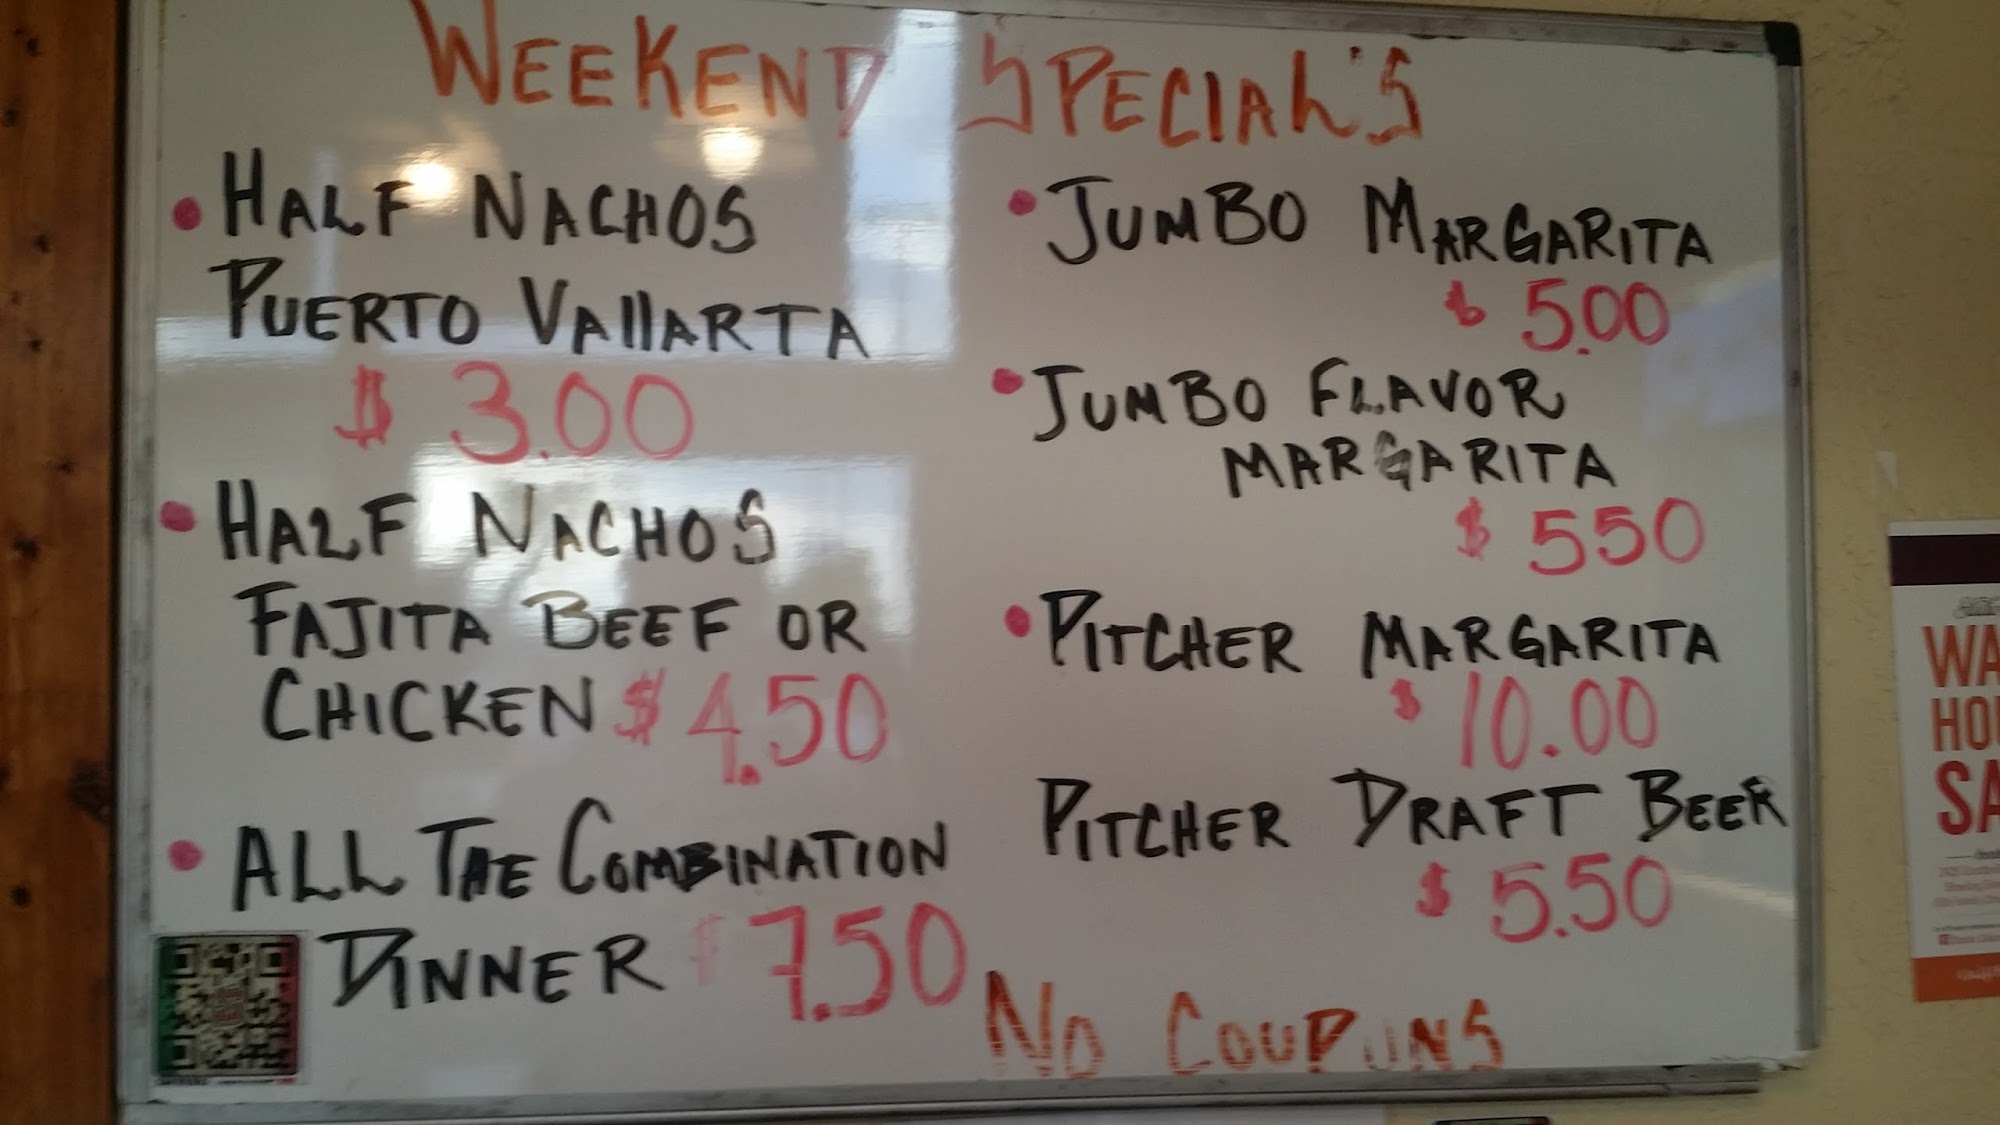 WEEKEND SPECIAL'S
• HALF NACHOS
PUERTO VALLARTA
$ 3.00
• HALF NACHOS
FAJITA BEEF OR
CHICKEN $ 4.50
• ALL THE COMBINATION
DINNER $ 7.50
• JUMBO MARGARITA
$ 5.00
• JUMBO FLAVOR
MARGARITA
$ 550
• PITCHER MARGARITA
$ 10.00
PITCHER DRAFT BEER
$ 5.50
NO COUPONS
WA
HO
SA